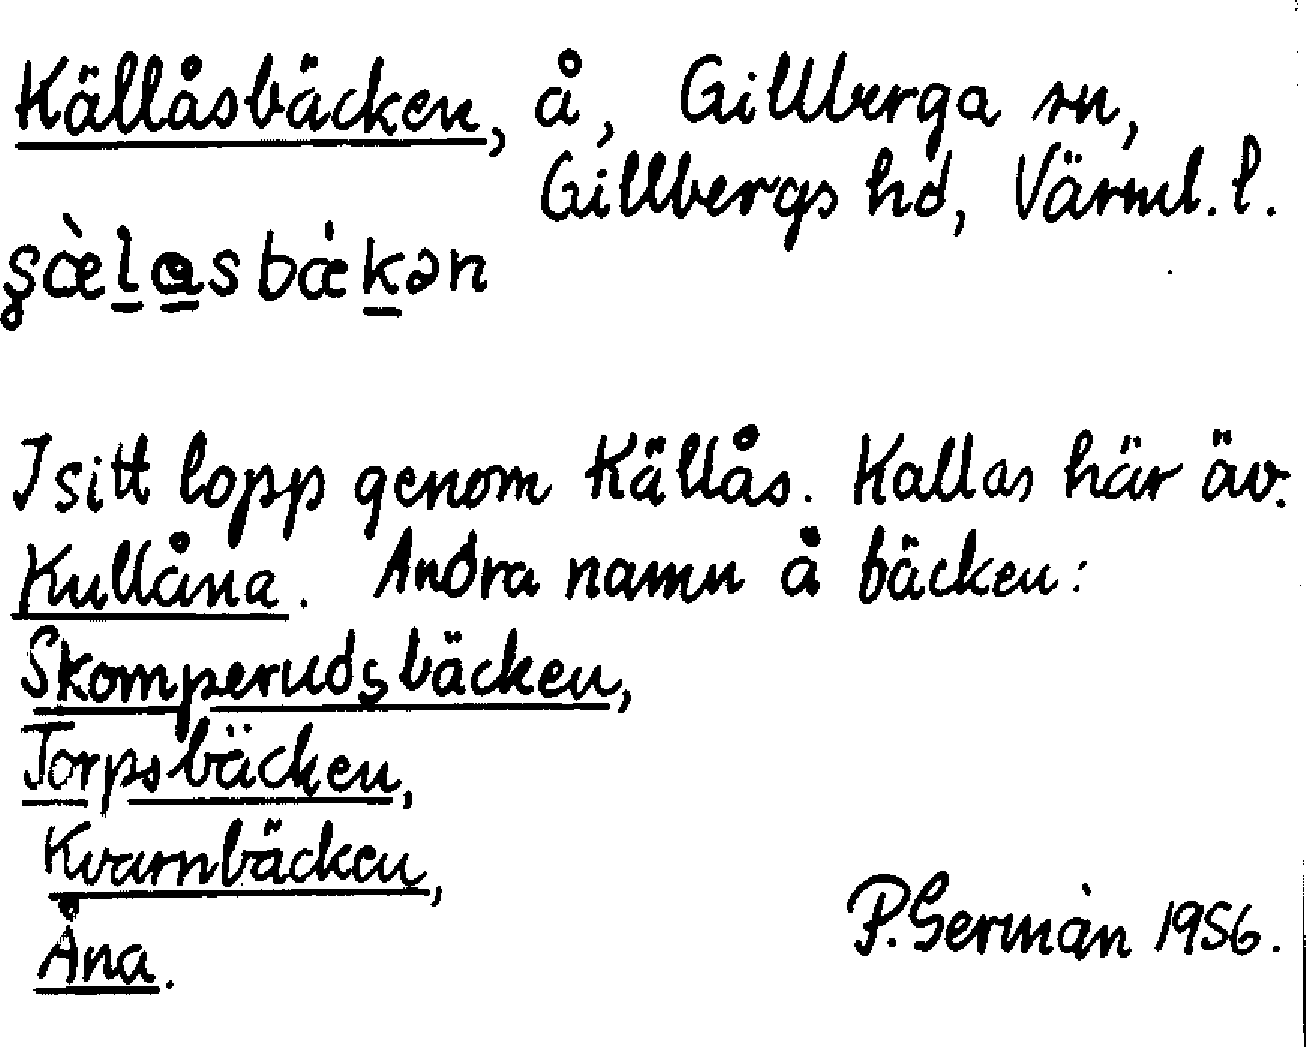 Källåsbäcken, å, Gillberga sn,
Gillbergs hd, Värml. l.
I sitt lopp genom Källås. Kallas här äv.
Kullåna. Andra namn å bäcken:
Skomperudsbäcken,
Torpsbäcken,
Kvarnbäcken,
Åna.
P. Serman 1956.